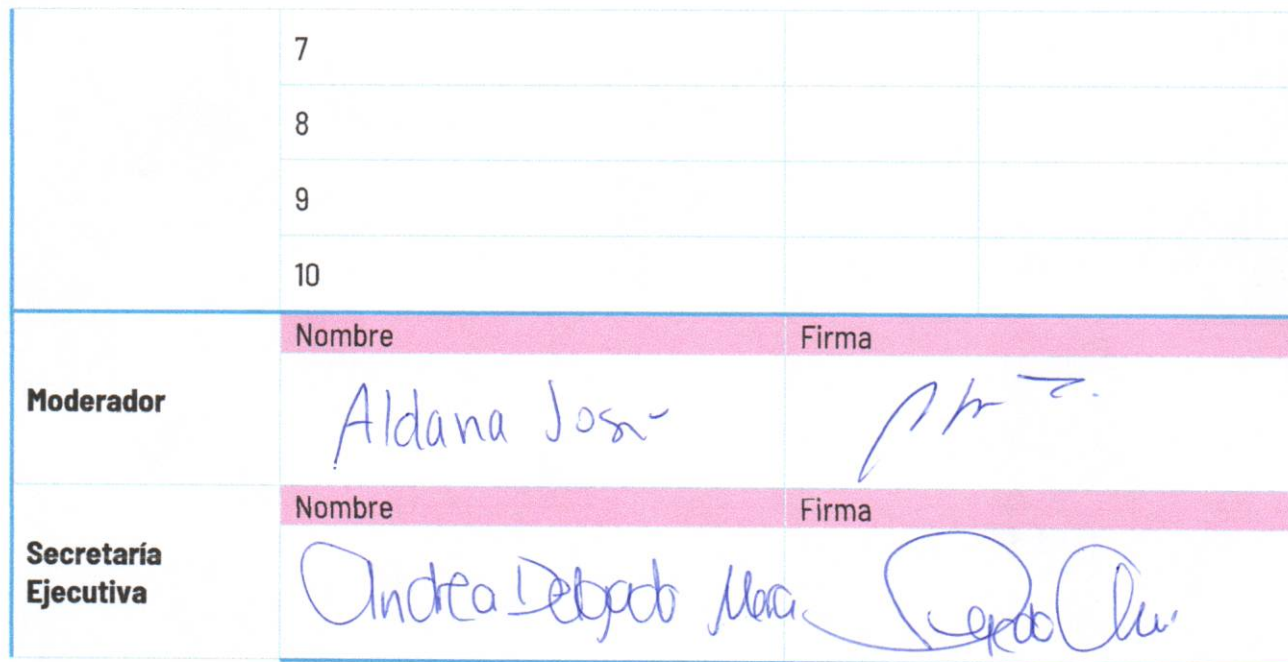 7
8
9
10
Nombre Firma
Moderador
Aldana
Nombre Firma
Secretaría
Ejecutiva
Andrea Delgado